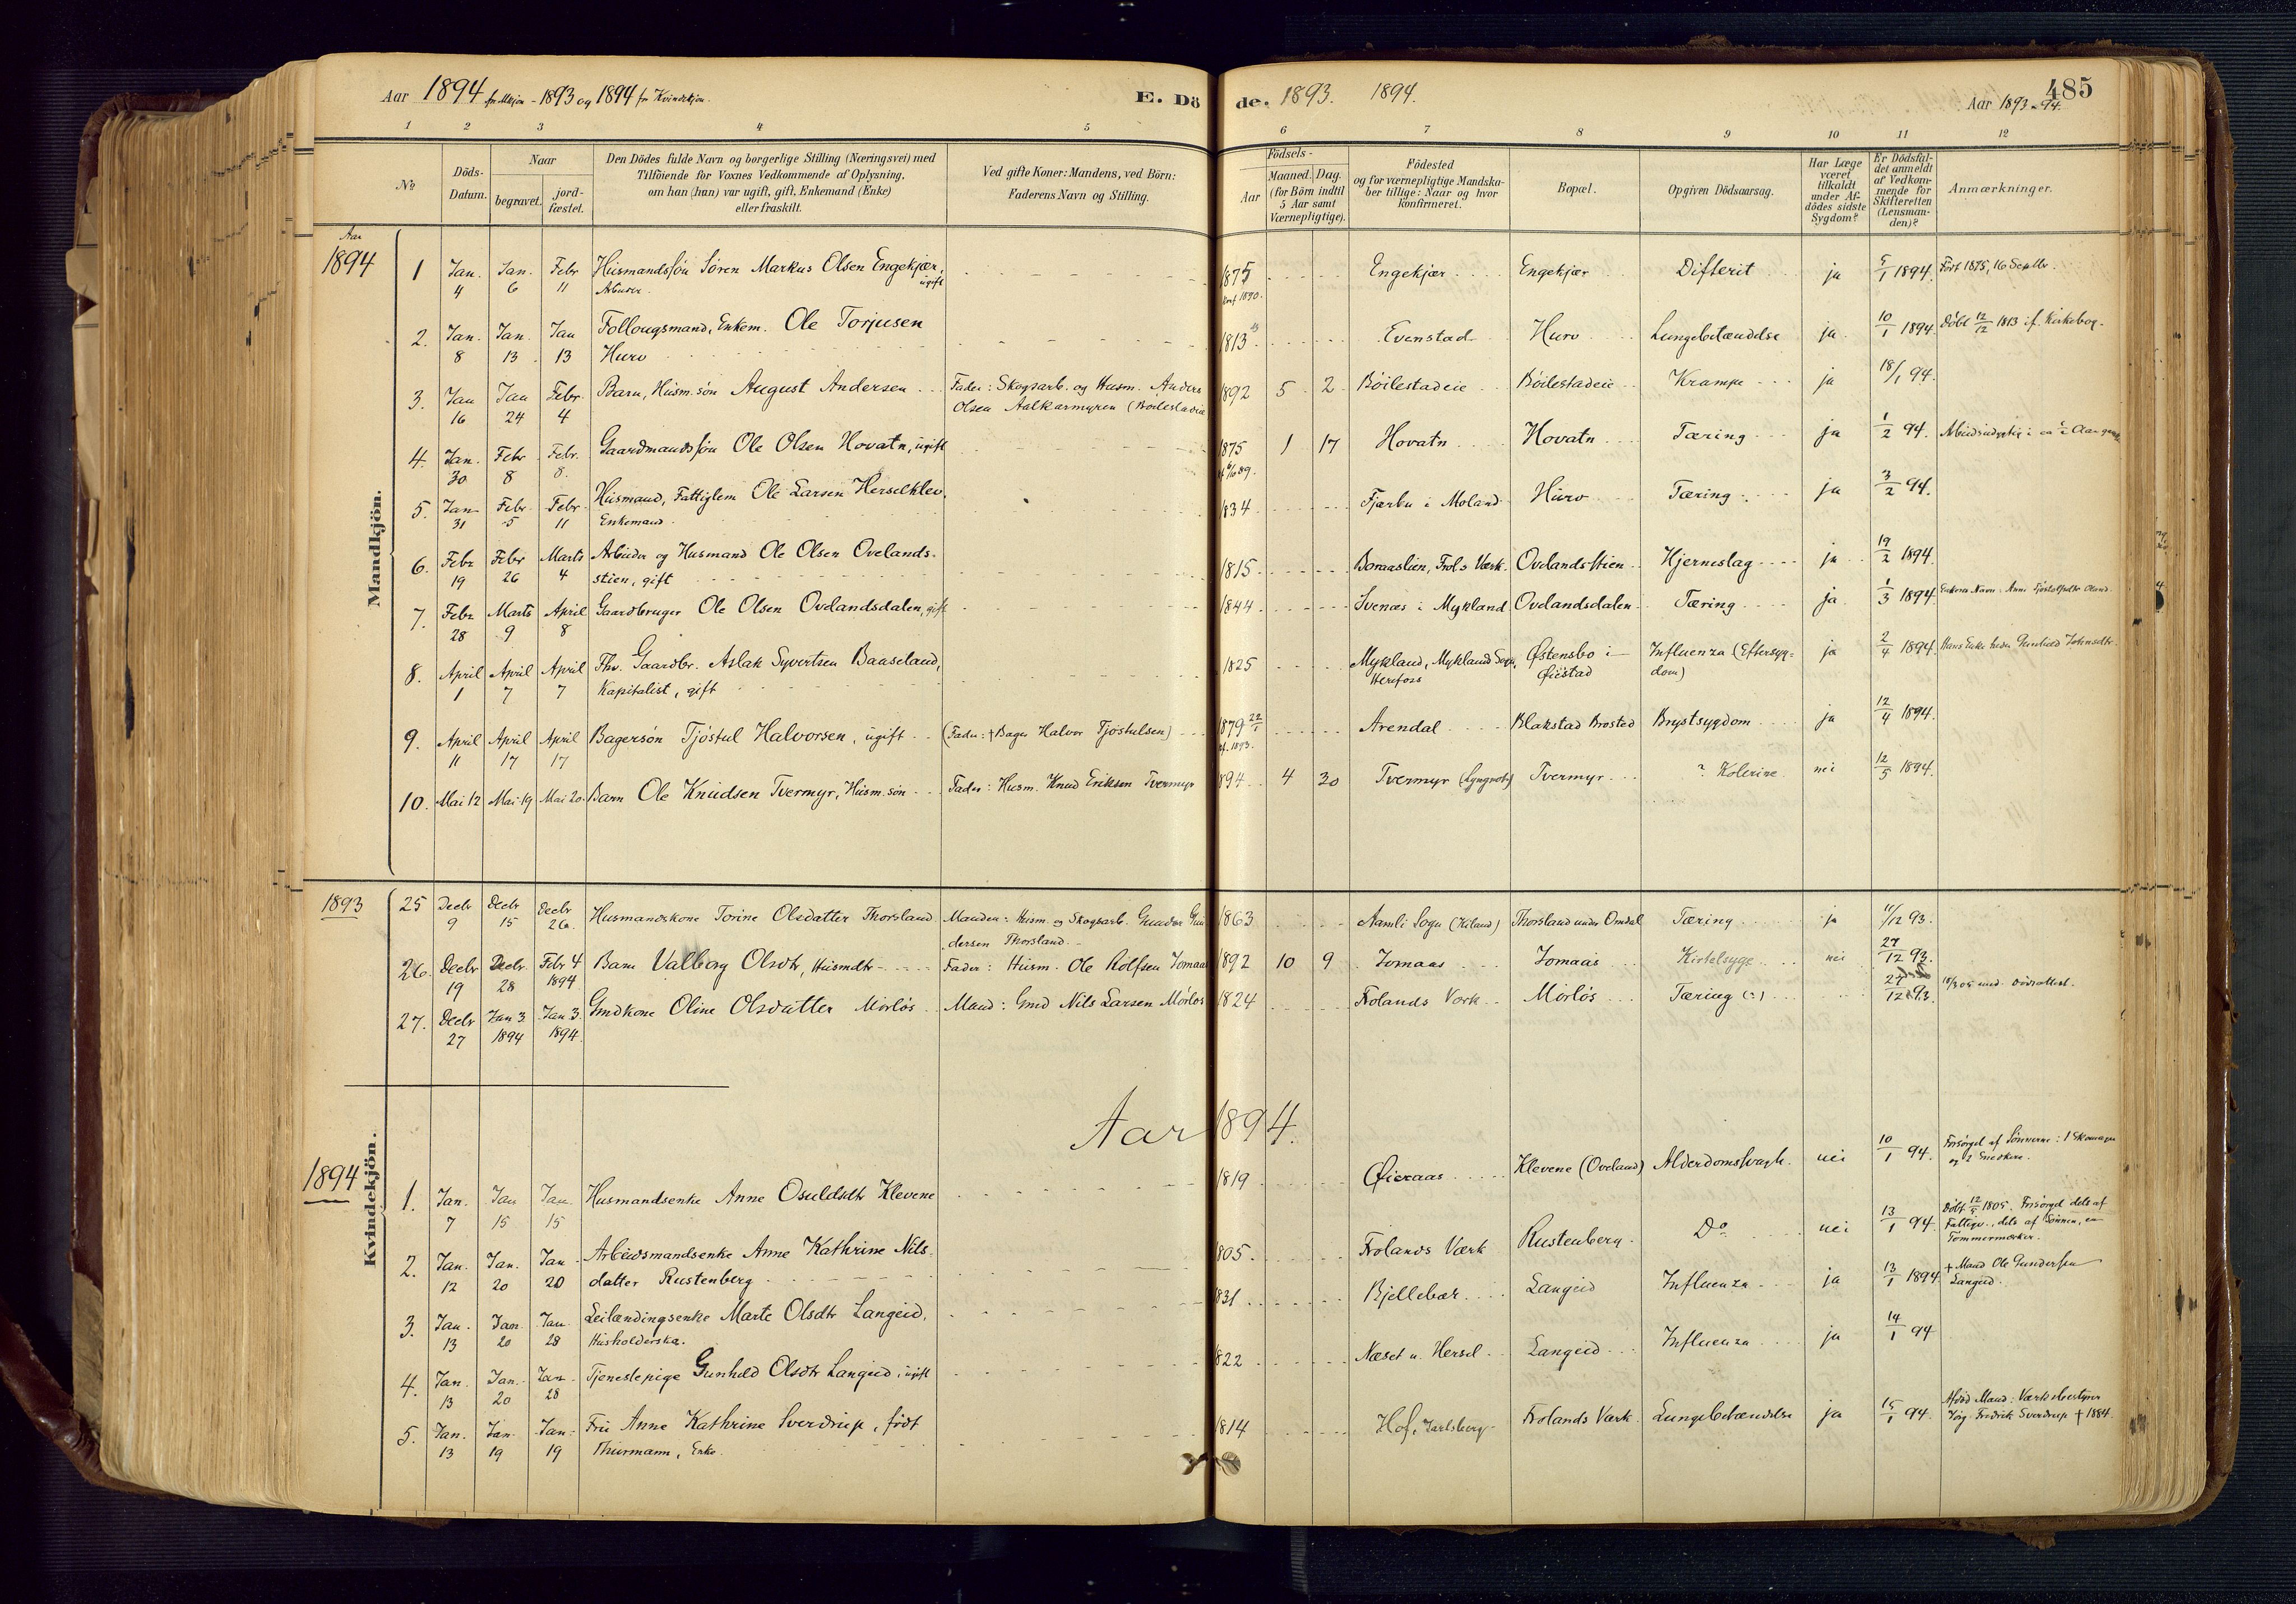 Aar 1894 for Mkjøn - 1893 og 1894 for Kvindekjøn.
E. Döde. 1893. 1894.
Aar 1893-94.
485
1 2 3 4 5 6 7 8 9 10 11 12
No
Döds-Datum.
Naar
begravet.
jordfæstet.
Den Dödes fulde Navn og borgerlige Stilling (Næringsvei) med
Tilföiende for Voxnes Vedkommende af Oplysning,
om han (hun) var ugift, gift, Enkemand (Enke)
eller fraskilt.
Ved gifte Koner: Mandens, ved Börn:
Faderens Navn og Stilling.
Födsels-
Aar
Maaned. Dag.
(for Börn indtil
5 Aar samt
Værnepligtige).
Födested
og for værnepligtige Mandska-
ber tillige: Naar og hvor
konfirmeret.
Bopæl.
Opgiven Dödsaarsag.
Har Læge
været
tilkaldt
under Af-
dödes sidste
Sygdom?
Er Dödsfal-
det anmeldt
af Vedkom-
mende for
Skifteretten
(Lensman-
den)?
Anmærkninger.
Mandkjön.
Aar
1894
1 Jan. 4 Jan. 6 Febr 11 Husmandssön Sören Markus Olsen Engekjær, ugift Arbeider. 1875 konf 1890. Engekjær Engekjær Difterit ja 5/1 1894. Født 1875, 16 Septbr.
2. Jan. 8 Jan. 13 Jan 13 Follougsmand, Enkem. Ole Torjusen
Hurv 1813 Evenstad Hurv Lungebetændelse ja 10/1 1894. Döbt 12/12 1813 if. Kirkebog.
3. Jan 16 Jan 24 Febr. 4 Barn, Husm. sön August Andersen Fader: Skogsarb. og Husm. Anders
Olsen Aalkarmyren (Böilestadeie 1892 5 2 Böilestadeie Böilestadeie Krampe ja 18/1 94.
4. Jan. 30 Febr 8 Febr. 8. Gaardmandssön Ole Olsen Hovatn, ugift 1875 1 17 Hovatn Hovatn Tæring ja 1/2 94.
5. Jan 31 Febr 5 Febr 11 Husmand, Fattiglem Ole Larsen Herselklev,
Enkemand. 1834 Fjærbu i Moland Hurv Tæring ja 3/2 94.
6. Febr 19 Febr 26 Marts 4 Arbeider og Husmand Ole Olsen Ovelands-
stien, gift 1815 Boraaslien, Frol.s Værk. Ovelandsstien Hjerneslag ja 19/2 1894.
7. Febr 28 Marts 9 April 8 Gaardbruger Ole Olsen Ovelandsdalen, gift 1844 Svenæs i Mykland Ovelandsdalen Tæring ja 1/3 1894.
8. April 1 April 7 April 7 Fhv. Gaardbr. Aslak Syvertsen Baaseland,
Kapitalist, gift 1825 Mykland, Mykland Sogn, Herefoss Østensbo i Øiestad Influenza (Eftersyg-
dom) ja 2/4 1894. Hans Enke heder Gunhild Johnsdtr.
9. April 11 April 17 April 17 Bagersön Tjöstul Halvorsen, ugift (Fader: † Bager Halvor Tjöstulsen) 1879 22/1 kf. 1893. Arendal Blakstad Brosted Brystsygdom ja 12/4 1894.
10. Mai 12 Mai 19 Mai 20 Barn Ole Knudsen Tvermyr, Husm. sön Fader: Husm. Knud Eriksen Tvermyr 1894 4 30 Tvermyr Tvermyr ? Kolerine nei 12/5 1894.
1893
25 Decbr 9 Decbr 15 Decbr 26. Husmandskone Torine Olsdatter Thorsland Manden: Husm. og Skogsarb. Gunder Gun
dersen Thorsland. 1863 Aamli Sogn (Kiland) Thorsland under Omdal Tæring ja 11/12 93.
26. Decbr 19 Decbr. 28 Febr 4 1894 Barn Valborg Olsdtr, Husmdtr Fader: Husm. Ole Rolfsen Jomaas 1892 10 9 Jomaas Jomaas Kirtelsyge nei 27/12 93.
27. Decbr 27 Jan 3. 1894 Jan 3. 1894. Gmdkone Oline Olsdatter Mörlös Mand: Gmd Nils Larsen Mörlös 1824 Frolands Værk Mörlös Tæring (?) 27/12 93.
Aar 1894.
Kvindekjön.
1894
1. Jan. 7 Jan 15 Jan. 15 Husmandsenke Anne Osuldsdtr Klevene 1819 Øieraas Klevene (Oveland) Alderdomssvagh. nei 10/1 94. Forsørget af Sønnerne: 1 Skomager
og 2 Snedkere.
2. Jan. 12 Jan. 20 Jan 20 Arbeidsmandsenke Anne Kathrine Nils-
datter Rustenberg 1805. Frolands Værk Rustenberg Do nei 13/1 94. Döbt 12/5 1805. Forsørget dels af
Fattigv., dels af Sønnen, en
Tømmermærker.
3. Jan. 13 Jan. 20 Jan. 28 Leilændingsenke Marte Olsdtr Langeid,
Husholderska. 1831 Bjellebær Langeid Influenza ja 13/1 1894. † Mand Ole Gundersen
Langeid.
4. Jan. 13 Jan. 20 Jan. 28 Tjenestepige Gunhild Olsdtr Langeid, ugift 1822 Næset u. Hersel Langeid Influenza ja 14/1 94
5. Jan. 13 Jan. 19 Jan. 19 Fru Anne Kathrine Sverdrup, født
Thurmann, Enke. 1814 Hof, Jarlsberg Frolands Værk Lungebetændelse ja 15/1 94. Afdød Mand: Værksbestyrer
Jörg. Fredrik Sverdrup † 1884.